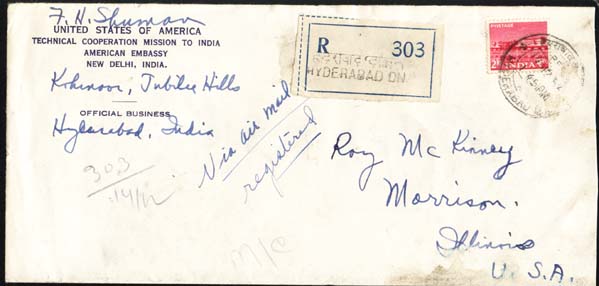 F. H. Shuman
UNITED STATES OF AMERICA
TECHNICAL COOPERATION MISSION TO INDIA
AMERICAN EMBASSY
NEW DELHI, INDIA.
Kohinoor, Jubilee Hills
OFFICIAL BUSINESS
Hyderabad, India
303
14/12
R 303
HYDERABAD DN.
POSTAGE
INDIA
Via air mail
registered
Roy McKinney
Morrison.
Illinois
U. S. A.